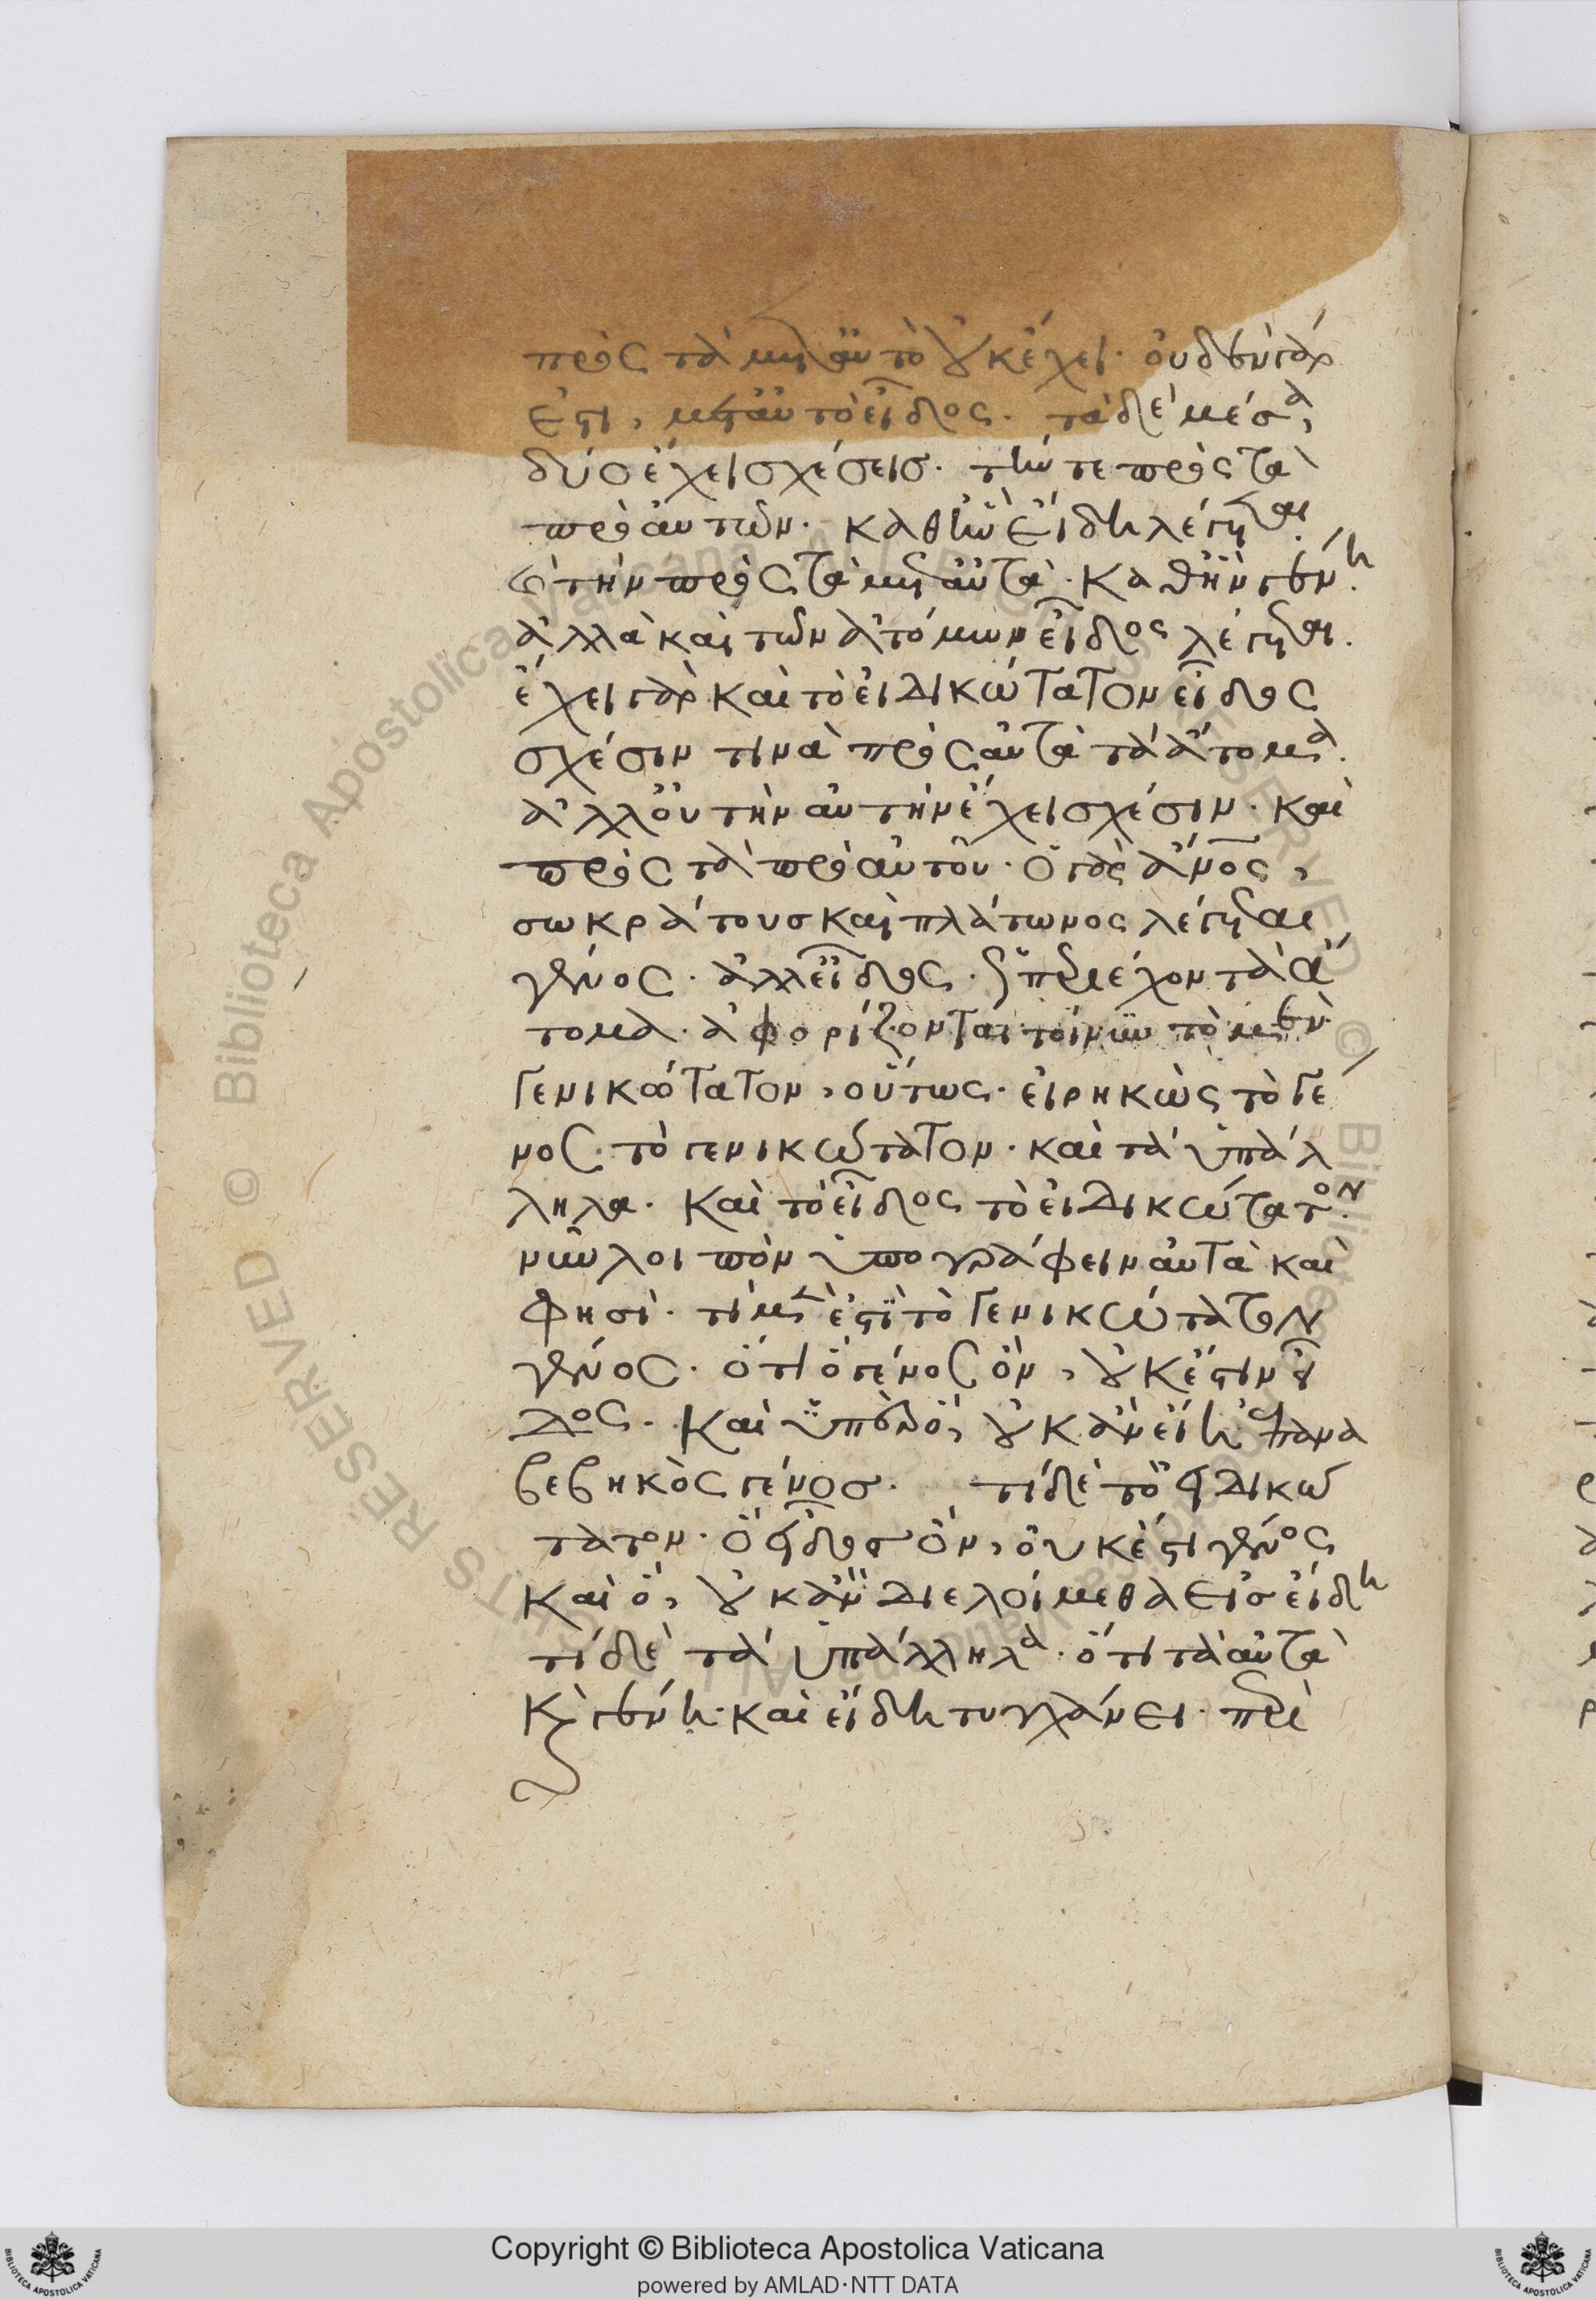 πρὸς τὰ μετ' αὐτὸ οὐκ ἔχει· οὐδὲν γὰρ
ἐστι, μετ' αὐτὸ εἶδος. τὰ δὲ μέσα,
δύο ἔχει σχέσεις· τήν τε πρὸς τὰ
πρὸ αὐτῶν· καθ' ἣν εἴδη λέγεται.
καὶ τὴν πρὸς τὰ μετ' αὐτὰ· καθ' ἣν γένη.
ἀλλὰ καὶ τῶν ἀτόμων εἶδος λέγεται.
ἔχει γὰρ καὶ τὸ εἰδικώτατον εἶδος
σχέσιν τινὰ πρὸς αὐτὰ τὰ ἄτομα.
ἀλλ' οὐ τὴν αὐτὴν ἔχει σχέσιν· καὶ
πρὸς τὰ πρὸ αὐτοῦ· ὁ γὰρ ἄνος,
σωκράτους καὶ πλάτωνος λέγεται
γένος· ἀλλ' εἶδος· ὡς περιέχον τὰ ἄ
τομα· ἀφορίζονται τοίνυν τὸ μὲν
γενικώτατον, οὕτως· εἰρηκὼς τὸ γέ
νος· τὸ γενικώτατον· καὶ τὰ ὑπάλ
ληλα· καὶ τὸ εἶδος τὸ εἰδικώτατον.
νῦν λοιπὸν ὑπογράφειν αὐτὰ καὶ
φησί· τί μέν ἐστι τὸ γενικώτατον
γένος· ὅτι ὃ γένος ὂν, οὐκ ἔστιν εἶ
δος· καὶ ὑπὲρ ὃ, οὐκ ἂν εἴη ἄλλο ἐπανα
βεβηκὸς γένος. τί δὲ τὸ εἰδικώ
τατον· ὃ εἶδος ὂν, οὐκ ἔστι γένος
καὶ ὃ, οὐκ ἂν διελοίμεθα εἰς εἴδη
τί δὲ τὰ ὑπάλληλα· ὅτι τὰ αὐτὰ
καὶ γένη· καὶ εἴδη τυγχάνει· περὶ